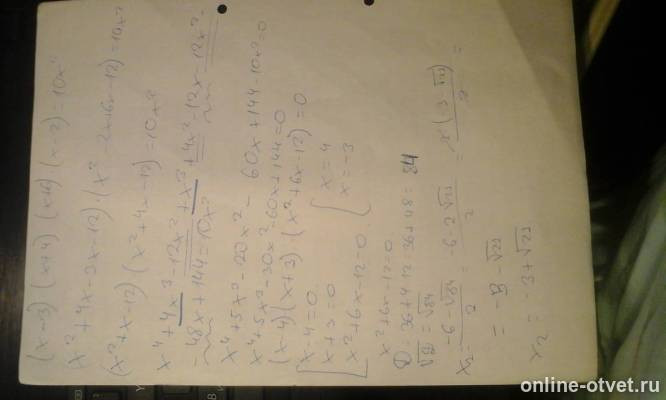 (x-3)(x+4)(x+6)(x-2)=10x²
(x²+4x-3x-12)(x²-2x+6x-12)=10x²
(x²+x-12)(x²+4x-12)=10x²
x⁴+4x³-12x²+x³+4x²-12x-12x²-
-48x+144=10x²
x⁴+5x³-20x²-60x+144-10x²=0
x⁴+5x³-30x²-60x+144=0
(x-4)(x+3)(x²+6x-12)=0
x-4=0 x=4
x+3=0 x=-3
x²+6x-12=0
x²+6x-12=0
D=36+4·12=36+48=84
√D=√84
x₂= -6-√84 / 2 = -6-2√21 / 2 =
= -3-√21
x₂=-3+√21
online-otvet.ru